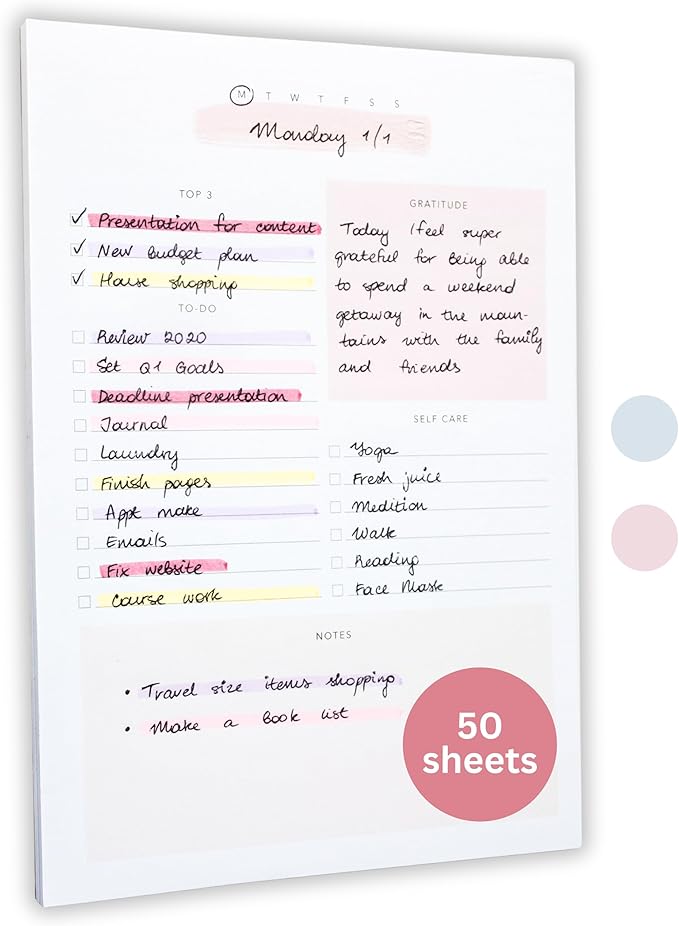 M T W T F S S
Monday 1/1
TOP 3
✓ Presentation for content
✓ New Budget plan
✓ House shopping
TO-DO
Review 2020
Set Q1 Goals
Deadline presentation
Journal
Laundry
Finish pages
Appt make
Emails
Fix website
Course work
GRATITUDE
Today I feel super
grateful for being able
to spend a weekend
getaway in the moun-
tains with the family
and friends
SELF CARE
Yoga
Fresh juice
Medition
Walk
Reading
Face Mask
NOTES
• Travel size items shopping
• Make a Book list
50
sheets